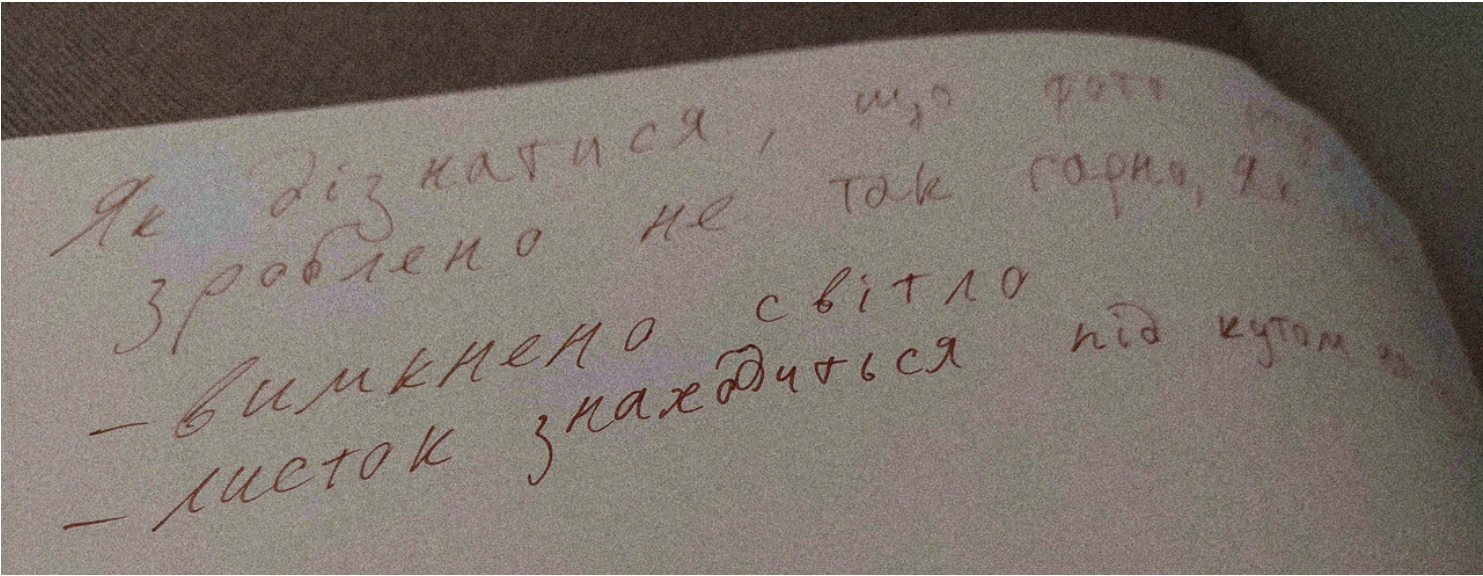 Як дізнатися, що фото
зроблено не так гарно, як
- вимкнено світло
- листок знаходиться під кутом